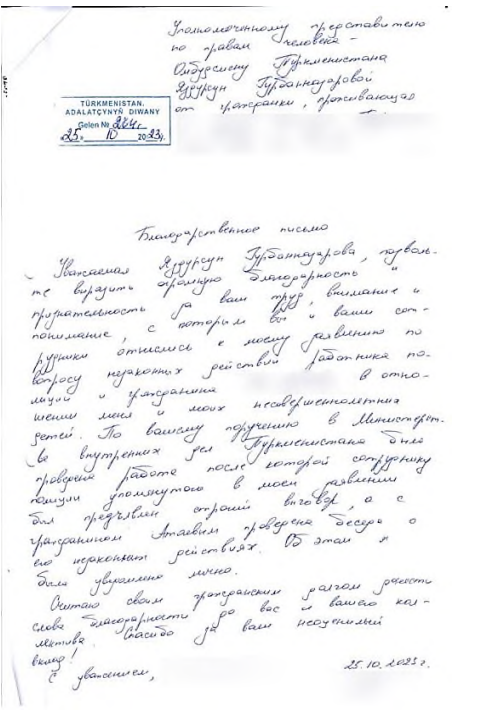 Уполномоченному представителю
по правам человека -
Омбудсмену Туркменистана
Яздурсун Гурбанназаровой
от гражданки, проживающая
TÜRKMENISTAN.
ADALATÇYNYŇ DIWANY
Gelen №
25 10 2023ý.
Благодарственное письмо
Уважаемая Яздурсун Гурбанназарова, позволь-
те выразить огромную благодарность и
признательность за ваш труд, внимание и
понимание, с которым вы и ваши сот-
рудники отнеслись к моему заявлению по
вопросу незаконных действий работника по-
лиции и гражданина в отно-
шении меня и моих несовершеннолетних
детей. По вашему поручению в Министерст-
ве внутренних дел Туркменистана была
проведена работа после которой сотруднику
полиции упомянутого в моем заявлении
был предъявлен строгий выговор, а с
гражданином Атаевым проведена беседа о
его незаконных действиях. Об этом я
была уведомлена лично.
Считаю своим гражданским долгом донести
слова благодарности до вас и вашего кол-
лектива. Спасибо за ваш неоценимый
вклад!
С уважением,
25.10.2023г.